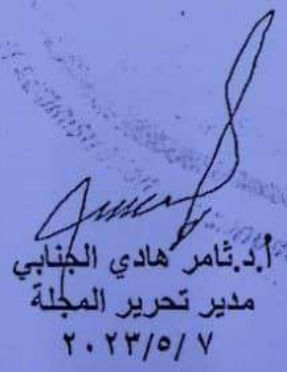 أ.د.ثامر هادي الجنابي
مدير تحرير المجلة
٢٠٢٣/٥/٧